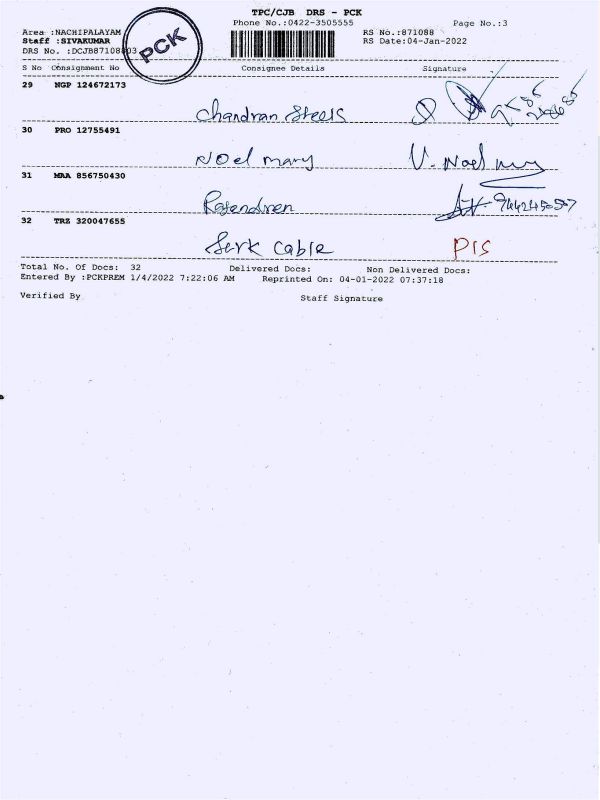 TPC/CJB DRS - PCK
Phone No.:0422-3505555 Page No.:3
Area :NACHIPALAYAM RS No.:871088
Staff :SIVAKUMAR RS Date:04-Jan-2022
DRS No. :DCJB87108803
PCK
S No Consignment No Consignee Details Signature
29 NGP 124672173
Chandran Steels
30 PRO 12755491
Noel mary V. Noel
31 MAA 856750430
Rajendren
32 TRZ 320047655
Cable PIS
Total No. Of Docs: 32 Delivered Docs: Non Delivered Docs:
Entered By :PCKPREM 1/4/2022 7:22:06 AM Reprinted On: 04-01-2022 07:37:18
Verified By Staff Signature